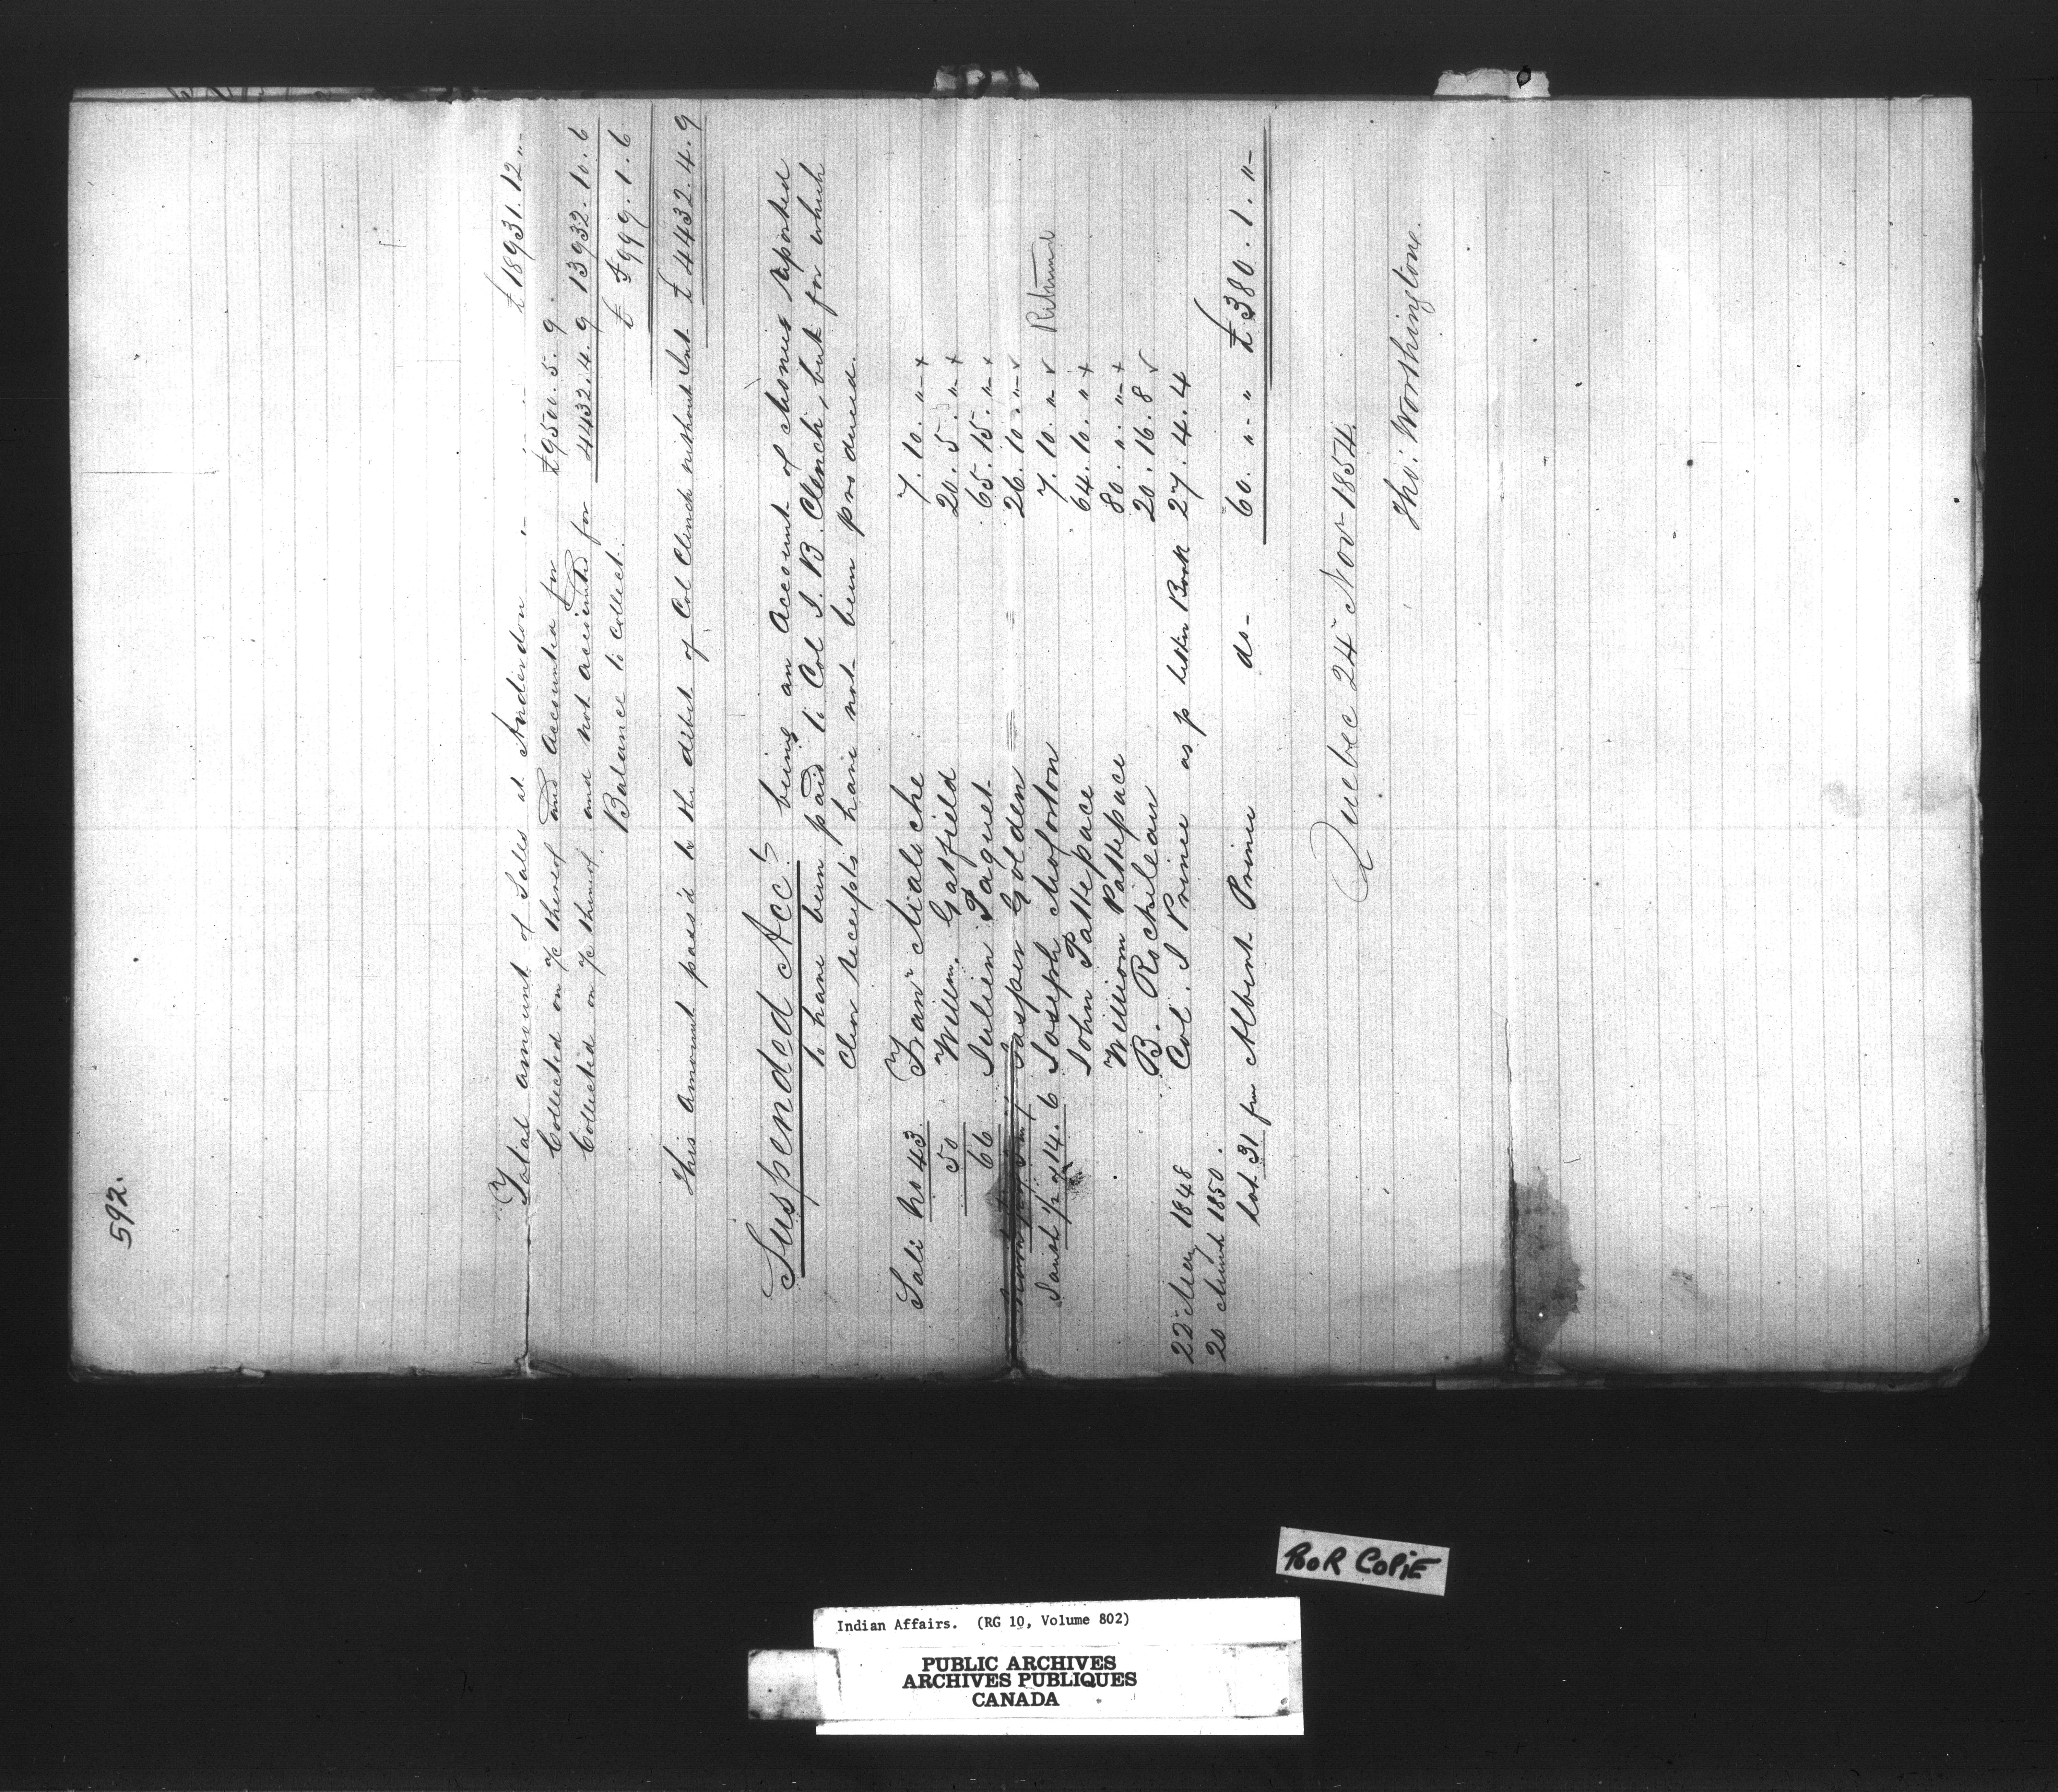 592.
Total amount of Sales at Anderdon " " " £18931.12."-
Collected on a/c thereof and accounted for £9500.5.9.
Collected on a/c thereof and not accounted for 4432.4.9 13932.10.6
Balance to collect. £ 4999.1.6
This amount pass'd to the debit of Col Clench without Int. £4432.4.9
Suspended Acct. being an Account of Monies reported
to have been paid to Col J. B. Clench, but for which
Clear receipts have not been produced.
Sale No 43. Fran Malache 7.10."-+
50 Willm. Gatfield 20.5."-+
66 Julien Paquet 65.15."-+
Jasper Golden 26.10."-v
South 1/2 of 14.6 Joseph Mosforton 7.10."-v Returned
John Pattepace 64.10."+
William Pattepace 80."."-+
B. Rochileau 20.16.8 v
22 May 1848 Col. J Prince as p letter Book 27.4.4
20 March 1850.
Lot 31 for Albert Prince do- 60."-" £380.1."-
Quebec 24 Nov 1854.
Tho: Worthington.
POOR COPIE
Indian Affairs. (RG 10, Volume 802)
PUBLIC ARCHIVES
ARCHIVES PUBLIQUES
CANADA